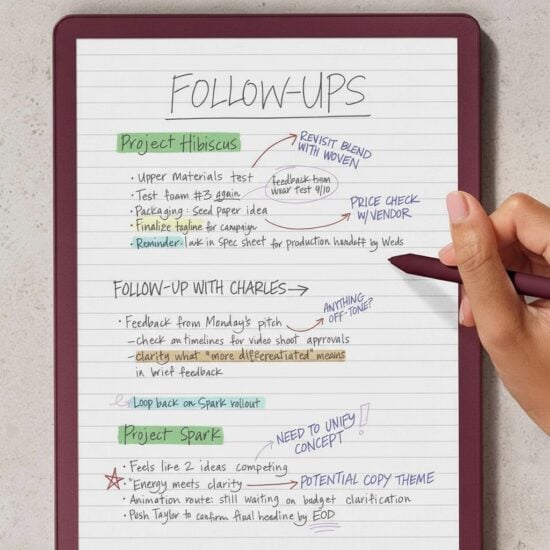 FOLLOW-UPS
Project Hibiscus
REVISIT BLEND
WITH WOVEN
· Upper materials test
· Test foam #3 again
feedback from
wear test 9/10
· Packaging: Seed paper idea
PRICE CHECK
W/VENDOR
· Finalize tagline for campaign
· Reminder: lock in spec sheet for production handoff by Weds
FOLLOW-UP WITH CHARLES→
ANYTHING
OFF-TONE?
· Feedback from Monday's pitch
– check on timelines for video shoot approvals
– clarity what "more differentiated" means
in brief feedback
Loop back on Spark rollout
Project Spark
NEED TO UNIFY
CONCEPT!
· Feels like 2 ideas competing
· "Energy meets clarity → POTENTIAL COPY THEME
· Animation route: still waiting on budget clarification
· Push Taylor to confirm final headline by EOD